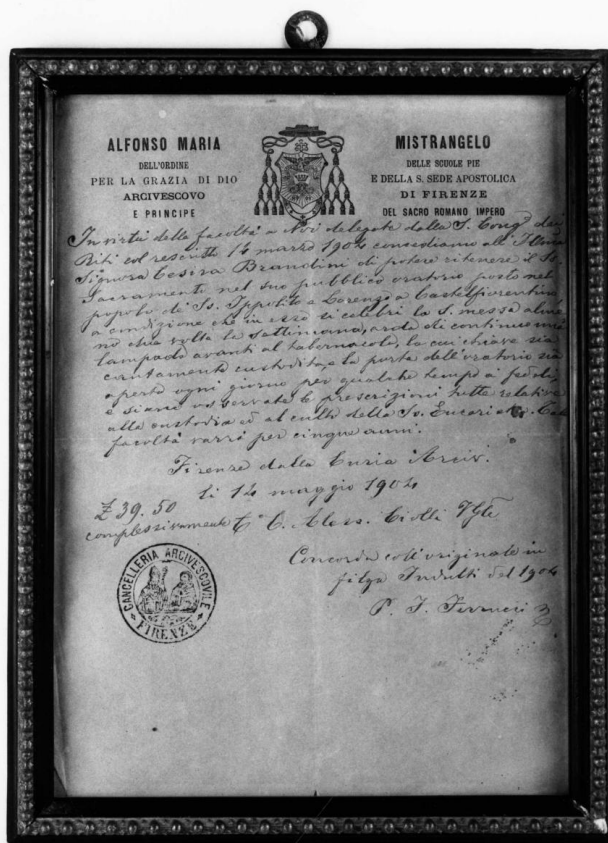 ALFONSO MARIA
DELL'ORDINE
PER LA GRAZIA DI DIO
ARCIVESCOVO
E PRINCIPE
MISTRANGELO
DELLE SCUOLE PIE
E DELLA S. SEDE APOSTOLICA
DI FIRENZE
DEL SACRO ROMANO IMPERO
In virtù delle facoltà a Noi delegate dalla S. Congne dei
Riti col rescritto 14 marzo 1904 concediamo alla Illma
Signora Cesira Brandini di potere ritenere il Ss.
Sacramento nel suo pubblico oratorio posto nel
popolo di Ss. Ippolito e Lorenzo a Castelfiorentino
a condizione che in esso si celebri la S. messa alme
no una volta la settimana, arda di continuo una
lampada avanti al tabernacolo, la cui chiave sia
cautamente custodita, e la porta dell'oratorio sia
aperta ogni giorno per qualche tempo ai fedeli,
e siano osservate le prescrizioni tutte relative
alla custodia ed al culto della Ss. Eucaristia.
facoltà varrà per cinque anni.
Firenze dalla Curia Arciv.
li 14 maggio 1904
£ 39.50
complessivamente
C. Aless. Ciolli
Concorda coll'originale in
filza Indulti del 1904
P. I. Ferrucci
CANCELLERIA ARCIVESCOVILE
FIRENZE